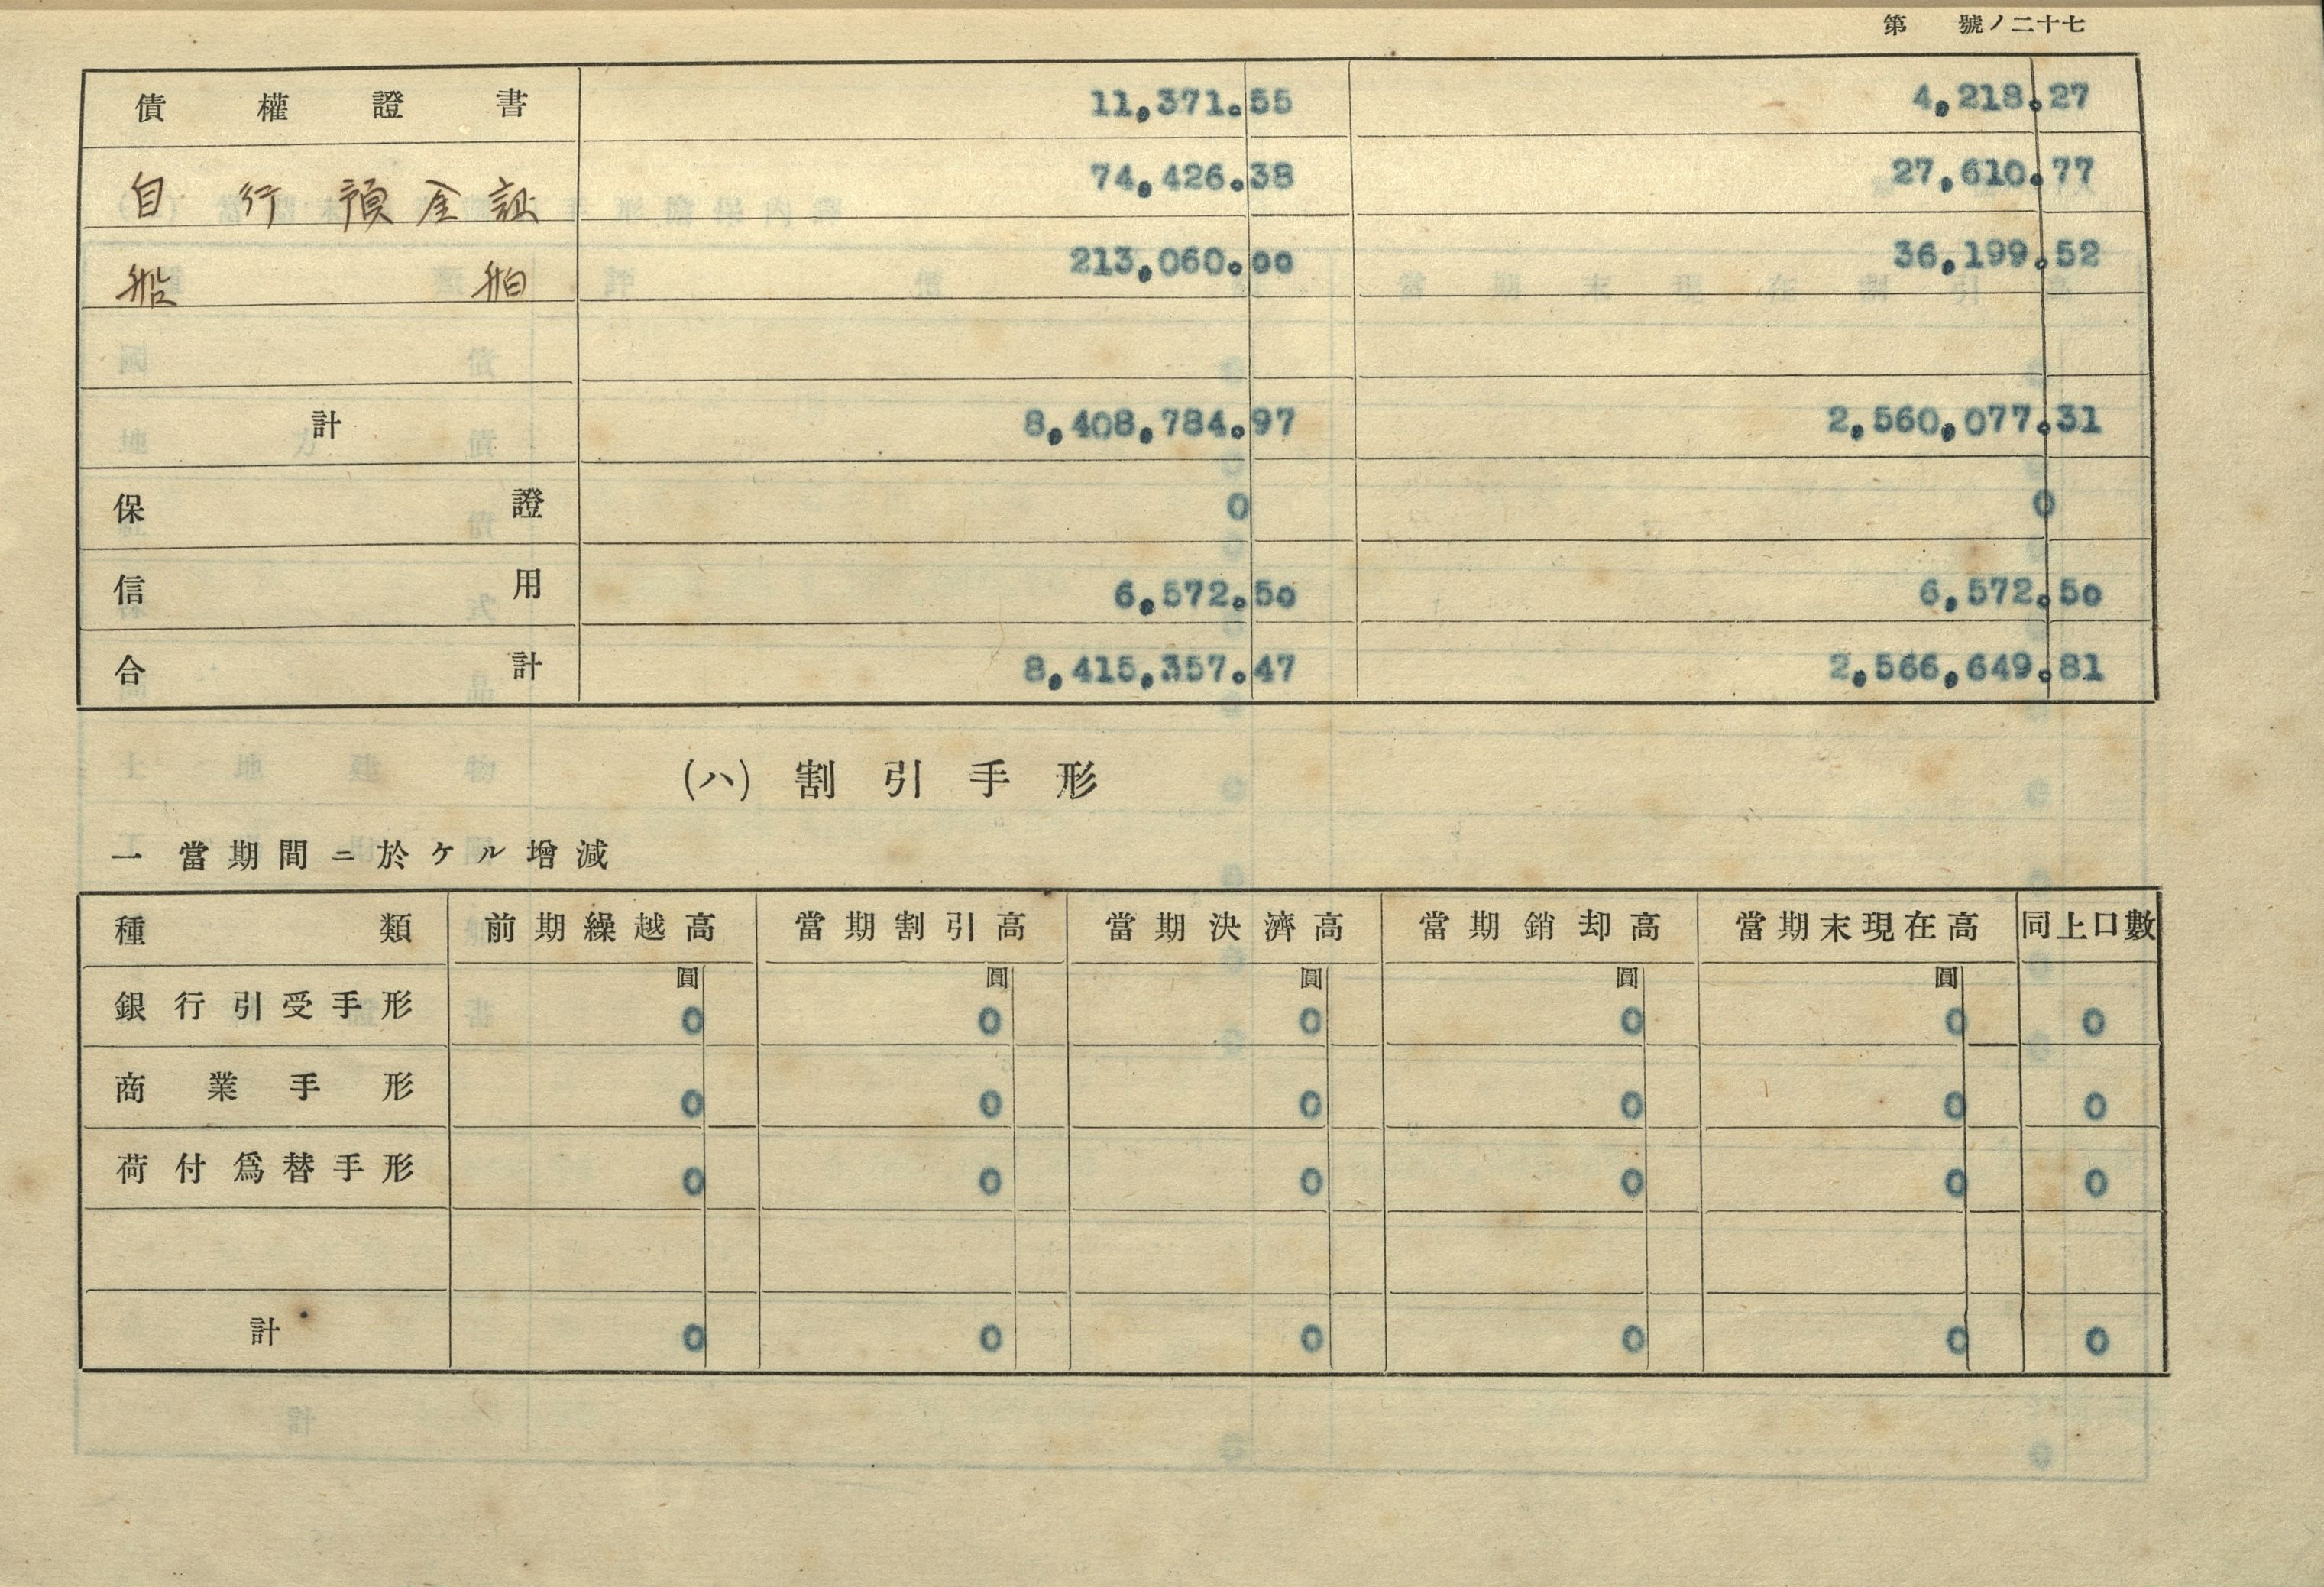 第 號ノ二十七
債權證書 11,371.55 4,218.27
自行預金証 74,426.38 27,610.77
船舶 213,060.00 36,199.52
計 8,408,784.97 2,560,077.31
保證 0 0
信用 6,572.50 6,572.50
合計 8,415,357.47 2,566,649.81
(ハ) 割引手形
一 當期間ニ於ケル增減
種類 前期繰越高 當期割引高 當期決濟高 當期銷却高 當期末現在高 同上口數
圓 圓 圓 圓 圓
銀行引受手形 0 0 0 0 0 0
商業手形 0 0 0 0 0 0
荷付爲替手形 0 0 0 0 0 0
計 0 0 0 0 0 0